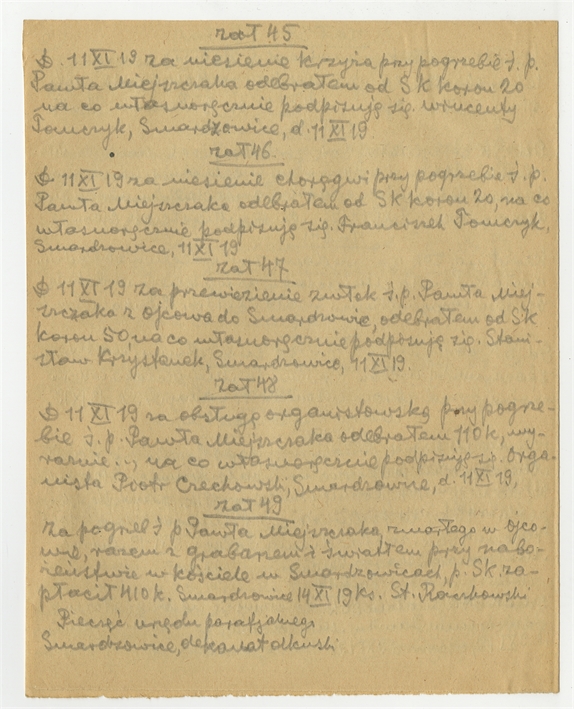 zał 45
D. 11 XI 19 za niesienie krzyża przy pogrzebie ś. p.
Pawła Miejszczaka odebrałem od SK koron 20
na co własnoręcznie podpisuję się. Wincenty
Tomczyk, Smardzowice, d. 11 XI 19
zał 46.
D 11 XI 19 za niesienie chorągwi przy pogrzebie ś. p.
Pawła Miejszczaka odebrałem od SK koron 20, na co
własnoręcznie podpisuję się. Franciszek Tomczyk,
Smardzowice, 11 XI 19
zał 47
D 11 XI 19 za przewiezienie zwłok ś. p. Pawła Miej-
szczaka z Ojcowa do Smardzowic, odebrałem od SK
koron 50 na co własnoręcznie podpisuję się. Stani-
sław Krzystanek, Smardzowice, 11 XI 19.
zał 48
D 11 XI 19 za obsługę organistowską przy pogrze-
bie ś. p. Pawła Miejszczaka odebrałem 110 k, wy-
raźnie..., na co własnoręcznie podpisuję się. Orga-
nista Piotr Czechowski, Smardzowice, d. 11 XI 19,
zał 49
Za pogrzeb ś p Pawła Miejszczaka zmarłego w Ojco-
wie, razem z grabarzem i światłem przy nabo-
żeństwie w kościele w Smardzowicach, p. SK. za-
płacił 410 k. Smardzowice 14 XI 19 ks. St. Raczkowski
Pieczęć urzędu parafjalnego
Smardzowice, dekanat olkuski